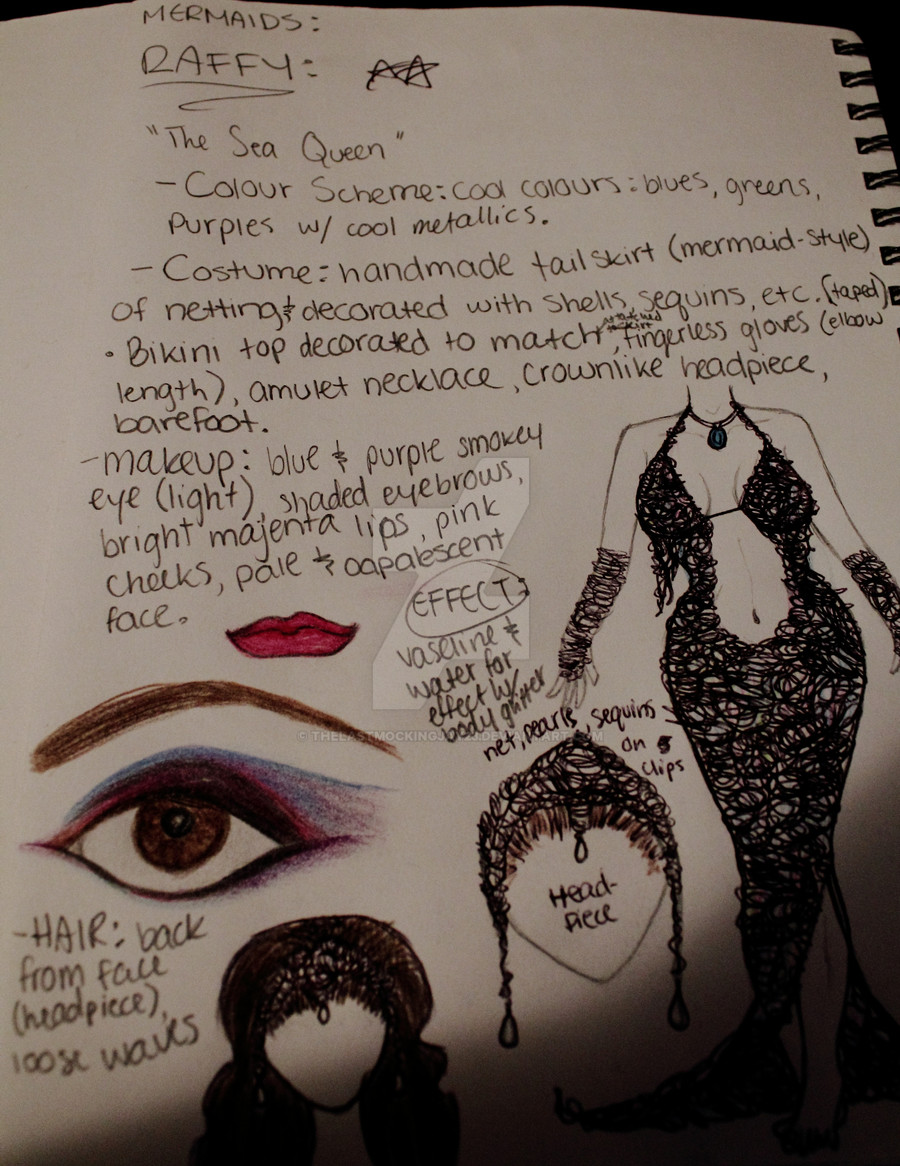 MERMAIDS:
RAFFY:
"The Sea Queen"
- Colour Scheme: cool colours: blues, greens,
purples w/ cool metallics.
- Costume: handmade tail skirt (mermaid-style)
of netting & decorated with shells, sequins, etc. (taped)
• Bikini top decorated to match, fingerless gloves (elbow
length), amulet necklace, crownlike headpiece,
barefoot.
- makeup: blue & purple smokey
eye (light), shaded eyebrows,
bright majenta lips, pink
cheeks, pale & oapalescent
face.
EFFECT:
vaseline &
water for
effect w/
body glitter
net, pearls, sequins
on
clips
Head-
piece
- HAIR: back
from face
(headpiece),
loose waves